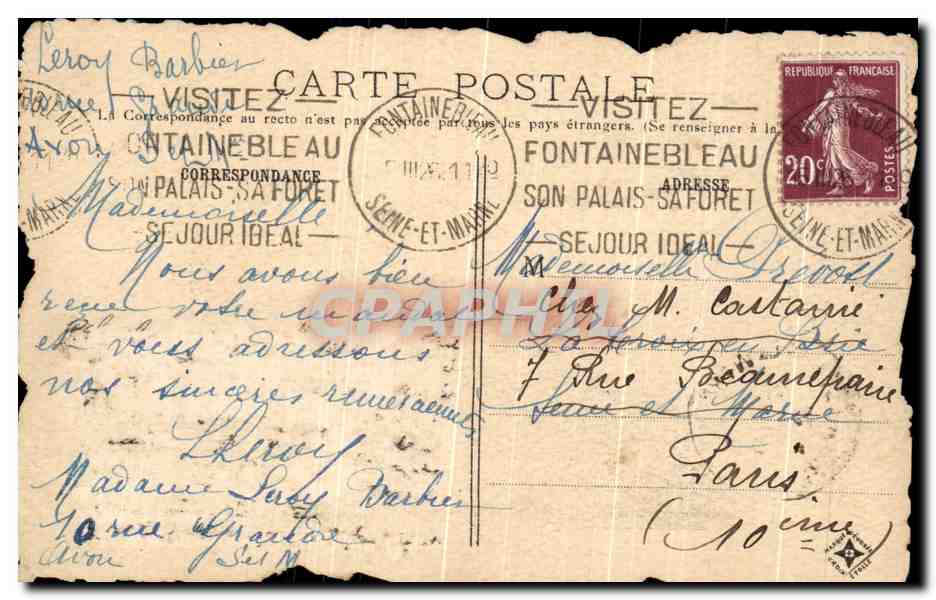 Leroy Barbier
CARTE POSTALE
La Correspondance au recto n'est pas acceptée par tous les pays étrangers. (Se renseigner à la
Avon
VISITEZ
FONTAINEBLEAU
SON PALAIS-SA FORET
SEJOUR IDEAL
FONTAINEBLEAU
SEINE-ET-MARNE
VISITEZ
FONTAINEBLEAU
SON PALAIS-SA FORET
SEJOUR IDEAL
REPUBLIQUE FRANÇAISE
20c
POSTES
SEINE-ET-MARNE
CORRESPONDANCE
Mademoiselle
Nous avons bien
votre mandat
et vous adressons
nos sincères remerciements
LLeroy
Madame Leroy Barbier
10 rue Grande
Avon S et M
ADRESSE
M
Mademoiselle Prevost
Chez M. Castanié
La Croix en Brie
7 Rue Bocquinefaire
Seine et Marne
Paris
(10 ième)
CPAPHIL